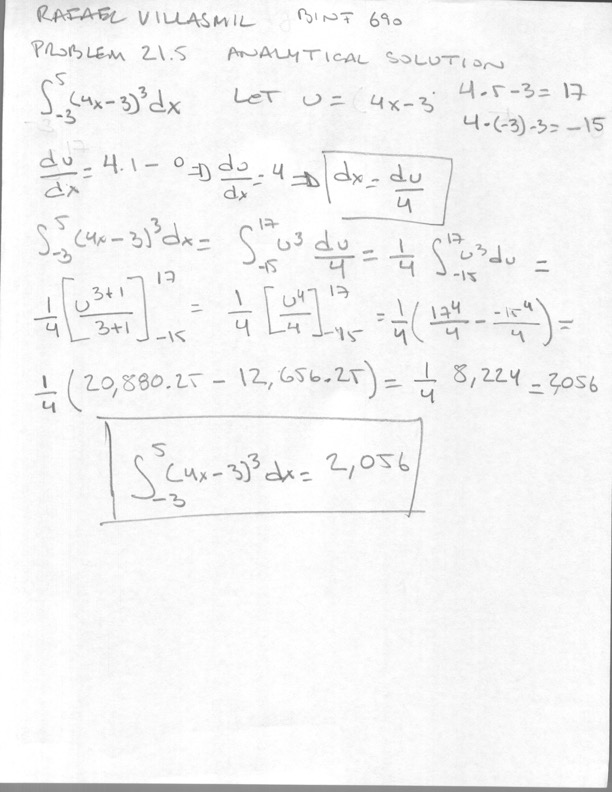 RAFAEL VILLASMIL BINF 690
PROBLEM 21.5 ANALYTICAL SOLUTION
∫_{-3}^{5} (4x-3)^3 dx LET U = 4x-3 4·5-3=17
4·(-3)-3=-15
du/dx = 4·1-0 ⇒ du/dx = 4 ⇒ dx = du/4
∫_{-3}^{5} (4x-3)^3 dx = ∫_{-15}^{17} u^3 du/4 = 1/4 ∫_{-15}^{17} u^3 du =
1/4 [u^{3+1}/3+1]_{-15}^{17} = 1/4 [u^4/4]_{-15}^{17} = 1/4 (17^4/4 - -15^4/4) =
1/4 (20,880.25 - 12,656.25) = 1/4 8,224 = 2,056
∫_{-3}^{5} (4x-3)^3 dx = 2,056